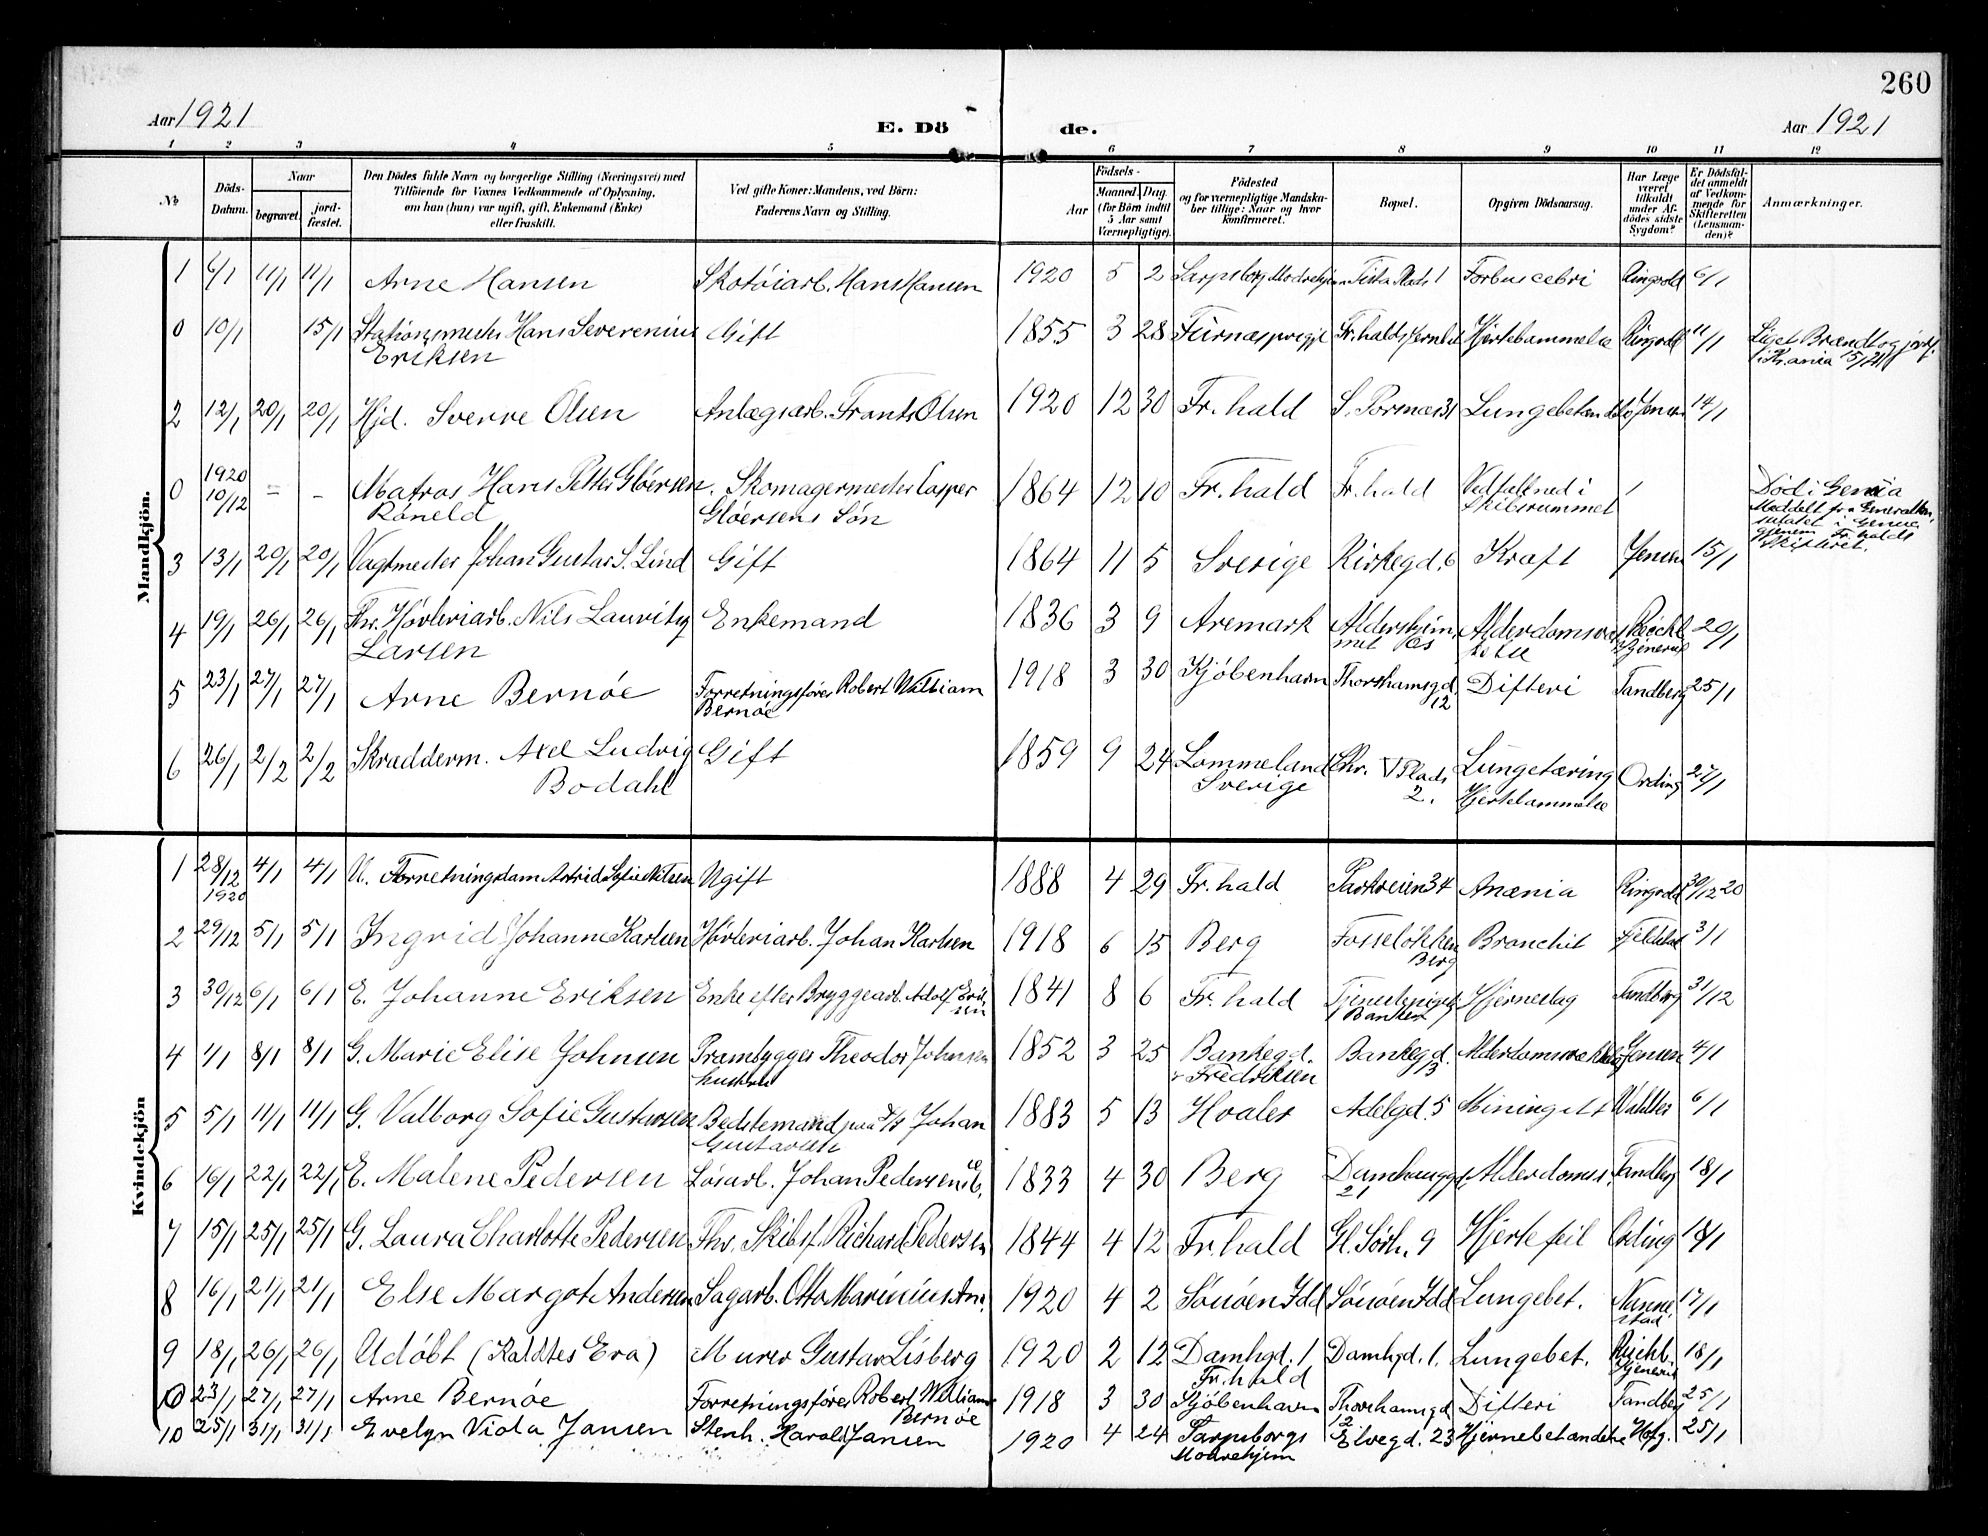 260
Aar 1921
E. Dö
de.
Aar 1921
1 2 3 4 5 6 7 8 9 10 11 12
No
Döds-Datum.
Naar
begravet.
jordfæstet.
Den Dödes fulde Navn og borgerlige Stilling (Næringsvei) med
Tilföiende for Voxnes Vedkommende af Oplysning,
om han (hun) var ugift, gift, Enkemand (Enke)
eller fraskilt.
Ved gifte Koner: Mandens, ved Börn:
Faderens Navn og Stilling.
Födsels-
Aar
Maaned. Dag.
(for Börn indtil
5 Aar samt
Værnepligtige).
Födested
og for værnepligtige Mandskaber tillige: Naar og hvor
konfirmeret.
Bopæl.
Opgiven Dödsaarsag.
Har Læge
været
tilkaldt
under Afdödes sidste
Sygdom?
Er Dödsfaldet anmeldt
af Vedkommende for
Skifteretten
(Lensmanden)?
Anmærkninger.
Mandkjön.
1 6/1 11/1 11/1 Arne Hansen Skotöiarb. Hans Hansen 1920 5 2 Sarpsborg Tista Plads 1 Ringvold 6/1
0 10/1 15/1 Stationsmester Hans Severenius Gift 1855 3 28 Hjertelammelse 11/1
Eriksen
Liget Brændt og jordf.
15/1
2 12/1 20/1 20/1 Hjd. Sverre Olsen Anlægsarb. Frants Olsen 1920 12 30 Fr.hald Jensen 14/1
0 1920
10/12 = – Matros Hans Petter Glöersen. Skomagermester Casper 1864 12 10 Fr.hald Fr.hald Ved fald ned i /
Röneld Glöersens Sön Skibsrummet
Död i Genua
Meddelt fra Generalkonsulatet i Genua
gjenem Fr.halds
Skifteret.
3 13/1 20/1 20/1 Vagtmester Johan Gustav S. Lind Gift 1864 11 5 Sverige Kirkegd. 6 Kraft Jensen 15/1
4 19/1 26/1 26/1 Fhv. Hövleriarb. Nils Lauritz Enkemand 1836 3 9 Aremark 20/1
Larsen
5 23/1 27/1 27/1 Arne Bernöe Forretningsförer Robert William 1918 3 30 Kjöbenhavn Thorshaugsgd. Difteri Tandberg 25/1
Bernöe 12
6 26/1 2/2 2/2 Skrædderm. Axel Ludvig Gift 1859 9 24 Lommeland Chr. V Plads Lungetæring Ording 27/1
Bodahl Sverige 2. Hjertelammelse
Kvindekjön
1 28/12 4/1 4/1 U. Forretningsdam Astrid Sofie Nilsen Ugift 1888 4 29 Fr.hald Parkveien 34 Anæmia Ringvold 30/12 20
1920
2 29/12 5/1 5/1 Ingrid Johanne Karlsen Hövleriarb. Johan Karlsen 1918 6 15 Berg Fosselökken Bronchit 3/1
Berg
3 30/12 6/1 6/1 E. Johanne Eriksen Enke efter Bryggearb. Adolf Eriksen 1841 8 6 Fr.hald Hjerneslag Tandberg 31/12
Banken
4 1/1 8/1 8/1 G. Marie Elise Johnsen Prambygger Theodor Johnsen 1852 3 25 Bankegd. Bankegd. Jensen 4/1
hustru Fredriksten 13
5 5/1 11/1 11/1 G. Valborg Sofie Gustavsen Bedstemand paa Johan 1883 5 13 Hvaler Adelgd. 5 Miningit 6/1
Gustavsen
6 16/1 22/1 22/1 E. Malene Pedersen Lösarb. Johan Pedersen 1833 4 30 Berg Damhauggt. Alderdomss. Tandberg 18/1
21
7 15/1 25/1 25/1 G. Laura Charlotte Pedersen Fhv. Skibsf. Richard Pedersen 1844 4 12 Fr.hald Gl. Sörh. 9 Hjertefeil Ording 18/1
8 16/1 21/1 21/1 Else Margot Andersen Sagarb. Otto Marinius An. 1920 4 2 Idd Idd Lungebet. Nannestad 17/1
9 18/1 26/1 26/1 Udöbt (Kaldtes Eva) Murer Gustav Lisberg 1920 2 12 Damhgd. 1 Damhgd. 1. Lungebet. 18/1
Fr.hald
10 23/1 27/1 27/1 Arne Bernöe Forretningsförer Robert William 1918 3 30 Kjöbenhavn Difteri Tandberg 25/1
Bernöe 12
10 25/1 31/1 31/1 Evelyn Viola Jansen Stenh. Harald Jansen 1920 4 24 Sarpsborgs Elvegd. 23 Hjernebetændelse 25/1
Mödrehjem